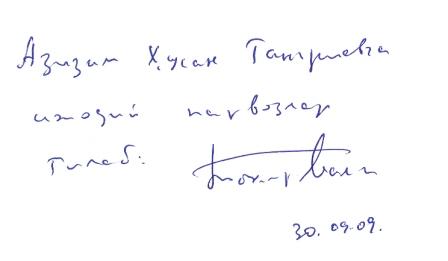 Азизим Ҳусан Тангриевга
ижодий парвозлар
тилаб:
30.09.09.